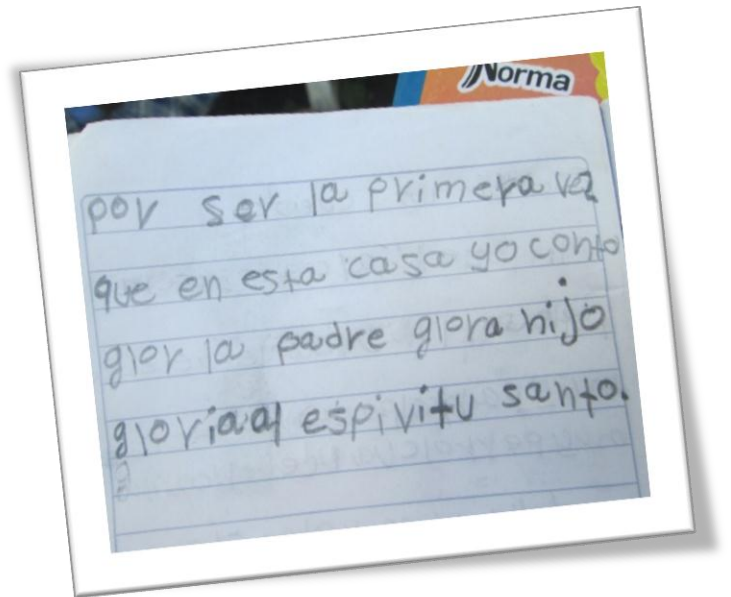 Norma
por ser la primera vez
que en esta casa yo conto
glor la padre glora hijo
gloriaal espiritu santo.